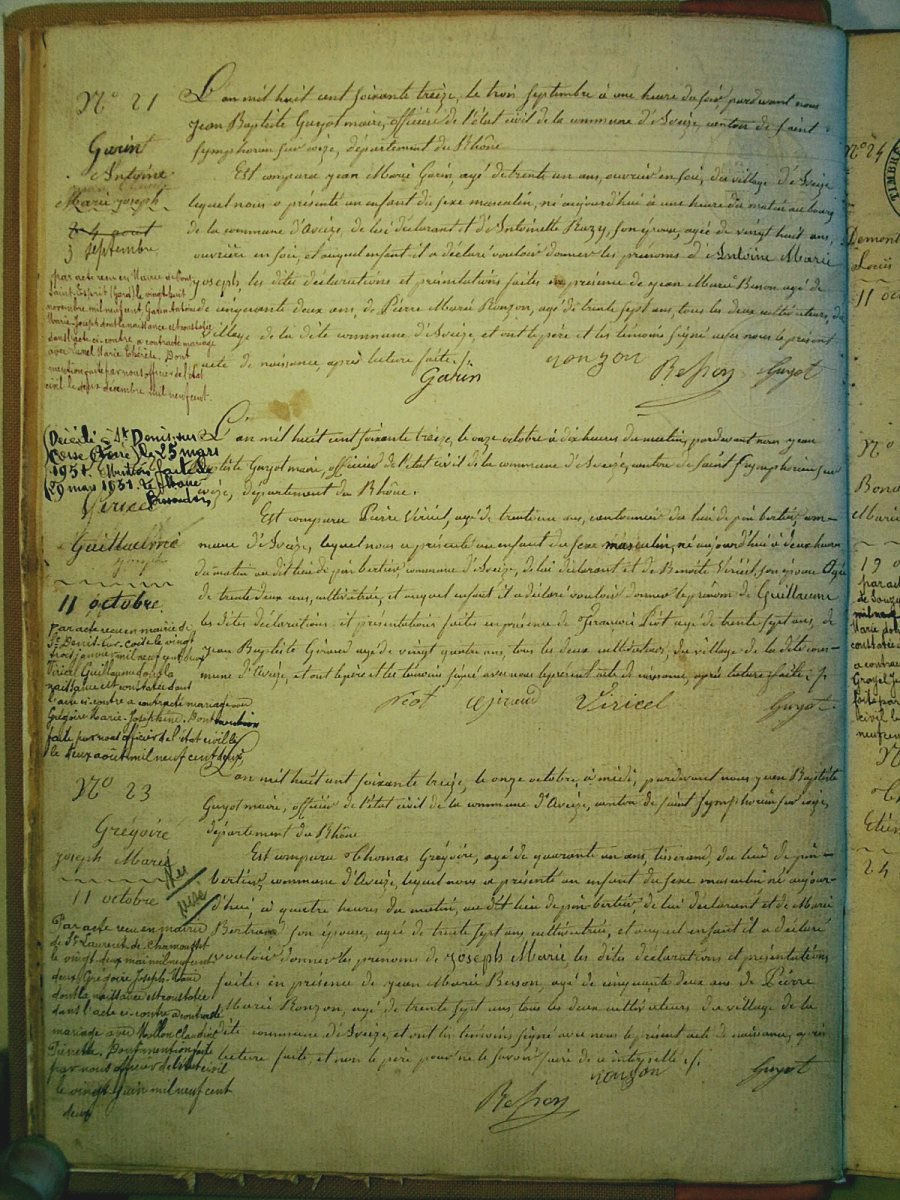 N° 21
Garin
Antoine
Marie Joseph
3 septembre
par acte reçu en Mairie de Pont
Saint Esprit (Gard) le vingt huit
novembre mil neuf cent Garin Antoine
Marie Joseph dont la naissance est constatée
dans l'acte ci-contre a contracté mariage
avec Marie Thérèse. Dont
mention faite par nous officier de l'état
civil le sept décembre mil neuf cent.
L'an mil huit cent soixante treize, le trois septembre à une heure du soir, pardevant nous
Jean Baptiste Guyot maire, officier de l'état civil de la commune d'Aveize, canton de Saint
Symphorien sur coize, département du Rhône
Est comparu Jean Marie Garin, agé de trente un ans, ouvrier en soie, du village d'Aveize
lequel nous a présenté un enfant du sexe masculin, né aujourd'hui à une heure du matin au bourg
de la commune d'Aveize, de lui déclarant et d'Antoinette son épouse, agée de vingt huit ans,
ouvrière en soie, et auquel enfant il a déclaré vouloir donner les prénoms d'Antoine Marie
Joseph, les dites déclarations et présentations faites en présence de Jean Marie Besson agé de
cinquante deux ans, de Pierre Marie Ronzon, agé de trente sept ans, tous les deux cultivateurs, du
village de la dite commune d'Aveize, et ont le père et les témoins signé avec nous le présent
acte de naissance, après lecture faite ./.
Garin ronzon Besson Guyot
Décédé à St Denis sur
Coise (Loire) le 25 mars
1931. Mention faite le
29 mars 1931. Le Maire
Viricel
Guillaume
11 octobre
par acte reçu en mairie de
St Denis sur Coise le vingt
trois janvier mil neuf cent deux
Viricel Guillaume dont la
naissance est constatée dans
l'acte ci-contre a contracté mariage avec
Grégoire Marie-Joséphine. Dont mention
faite par nous officier de l'état civil le
le deux août mil neuf cent deux
L'an mil huit cent soixante treize, le onze octobre à dix heures du matin, pardevant nous Jean
Baptiste Guyot maire, officier de l'état civil de la commune d'Aveize, canton de Saint Symphorien sur
coize, département du Rhône.
Est comparu Pierre Viricel, agé de trente un ans, cantonnier du lieu de pin bertier, com-
mune d'Aveize, lequel nous a présenté un enfant du sexe masculin, né aujourd'hui à deux heures
du matin au dit lieu de pin bertier, commune d'Aveize, de lui déclarant et de Benoite Viricel, son épouse Agée
de trente deux ans, cultivatrice, et auquel enfant il a déclaré vouloir donner le prénom de Guillaume
les dites déclarations et présentations faites en présence de François Piot agé de trente sept ans, de
Jean Baptiste Giraud agé de vingt quatre ans, tous les deux cultivateurs, du village de la dite com-
mune d'Aveize, et ont le père et les témoins signé avec nous le présent acte de naissance, après lecture faite ./.
Piot Giraud Viricel Guyot
N° 23
Grégoire
Joseph Marie
11 octobre
Par acte reçu en mairie
de St Laurent de Chamousset
le vingt deux mai mil neuf cent
deux Grégoire Joseph-Marie
dont la naissance est constatée
dans l'acte ci-contre a contracté
mariage avec Claudine
Pierrette. Dont mention faite
par nous officier de l'état civil
le vingt juin mil neuf cent
deux
L'an mil huit cent soixante treize, le onze octobre, à midi, pardevant nous Jean Baptiste
Guyot maire, officier de l'état civil de la commune d'Aveize, canton de saint Symphorien sur coize,
département du Rhône
Est comparu Thomas Grégoire, agé de quarante un ans, tisserand, du lieu de pin-
bertier, commune d'Aveize, lequel nous a présenté un enfant du sexe masculin né aujour-
d'hui, à quatre heures du matin, au dit lieu de pin-bertier, de lui déclarant et de Marie
Bertrand son épouse, agée de trente sept ans cultivatrice, et auquel enfant il a déclaré
vouloir donner les prénoms de Joseph Marie, les dites déclarations et présentations
faites en présence de Jean Marie Besson, agé de cinquante deux ans de Pierre
Marie Ronzon, agé de trente sept ans, tous les deux cultivateurs du village de la
dite commune d'Aveize, et ont les témoins signé avec nous le présent acte de naissance, après
lecture faite, et non le père pour ne le savoir faire de ce interpellé ./.
ronzon Guyot
Besson
N° 24
TIMBRE
Louis
11 oc
N°
Marie
24